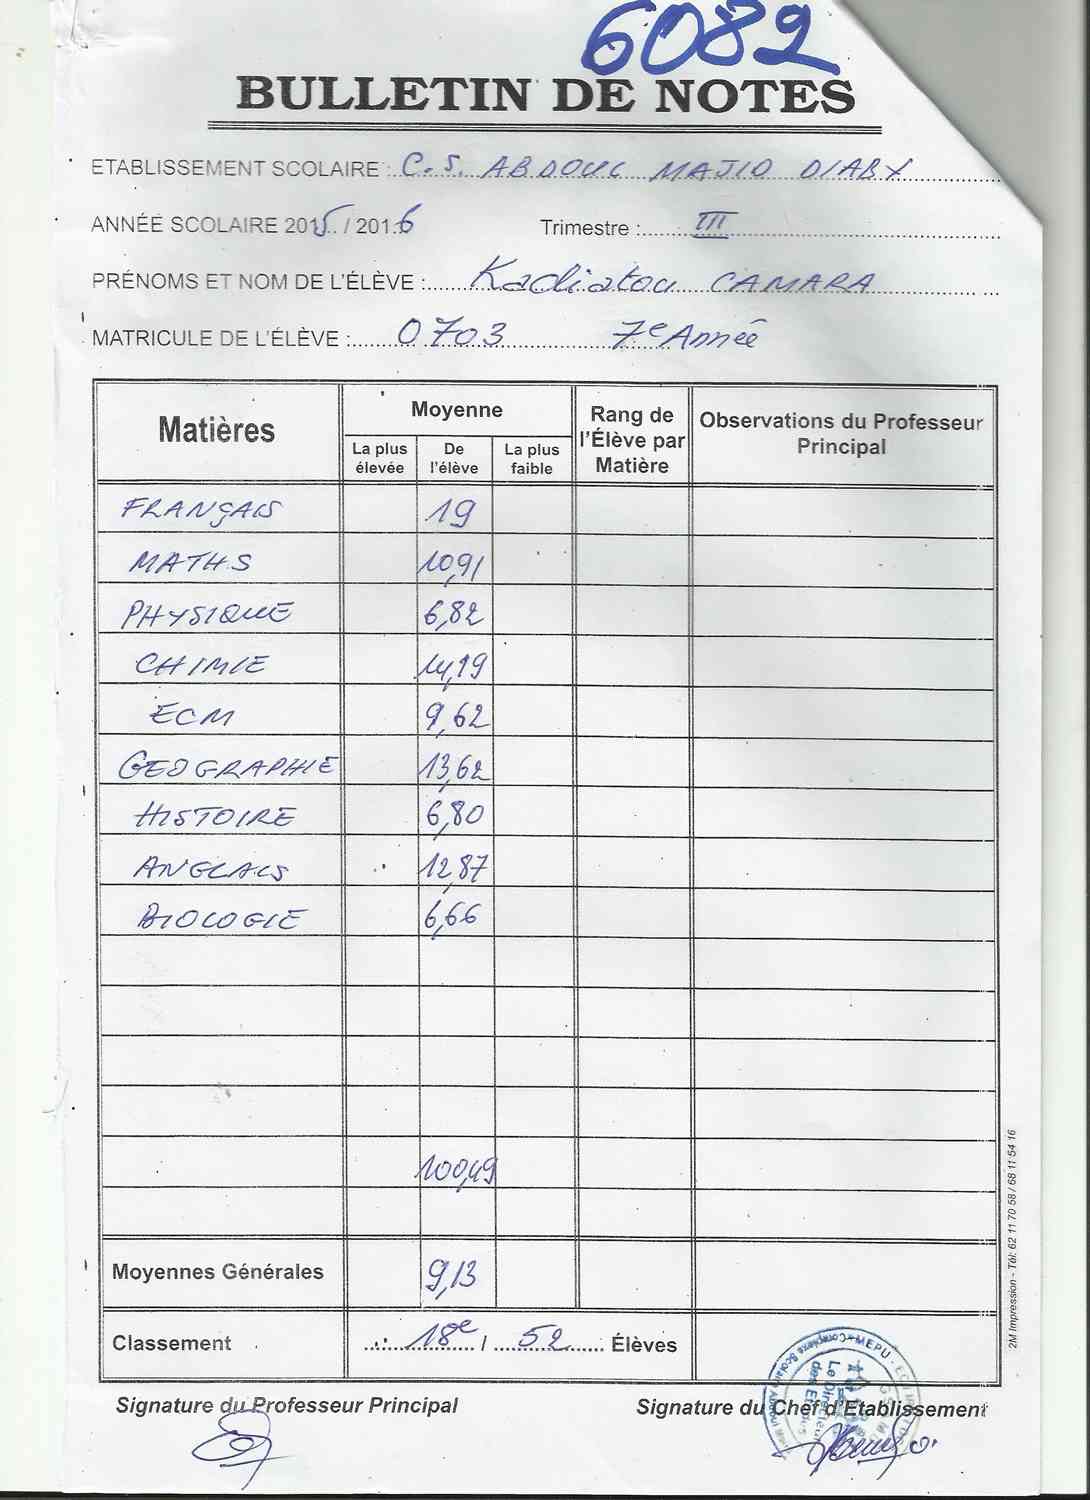 6082
BULLETIN DE NOTES
ETABLISSEMENT SCOLAIRE : C.S. ABDOUL MAJID DIABY
ANNÉE SCOLAIRE 2015 / 2016 Trimestre : III
PRÉNOMS ET NOM DE L'ÉLÈVE : Kadiatou CAMARA
MATRICULE DE L'ÉLÈVE : 0703 7e Année
Matières Moyenne Rang de l'Élève par Matière Observations du Professeur Principal
La plus élevée De l'élève La plus faible
FRANÇAIS 19
MATHS 10,91
PHYSIQUE 6,82
CHIMIE 14,19
ECM 9,62
GEOGRAPHIE 13,62
HISTOIRE 6,80
ANGLAIS 12,87
BIOLOGIE 6,66
100,49
Moyennes Générales 9,13
Classement 18e / 52 Élèves
Signature du Professeur Principal Signature du Chef d'Etablissement
MEPU
Complexe Scolaire
Le Directeur
des Etudes
2M Impression - Tél: 62 11 70 58 / 68 11 54 16